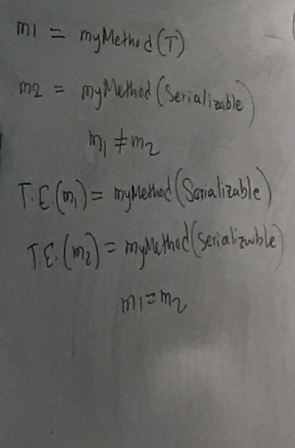 m1 = myMethod(T)
m2 = myMethod(Serializable)
m1 ≠ m2
T.E.(m1) = myMethod(Serializable)
T.E.(m2) = myMethod(Serializable)
m1 = m2